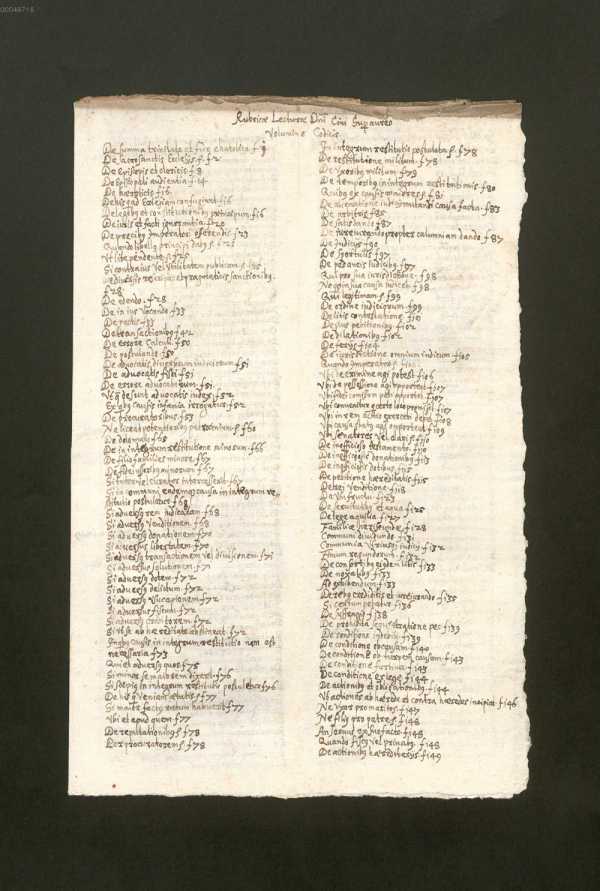 00048718
Rubricae Lecturae Dni Cini Super aureo
Volumine Codicis
De summa trinitate et fide catholica f. 1
De sacrosanctis Ecclesijs f. 2
De Episcopis et clericis f. 8
De Episcopali audientia f. 14
De haereticis f. 16
De his qui ad Ecclesiam confugiunt f. 16
De legibus et constitutionibus principum f. 16
De iuris et facti ignorantia f. 20
De precibus Imperatori offerendis f. 23
Quando libellus principi datus f. 25
Ut lite pendente f. 25
Si contra ius vel utilitatem publicam f. 25
De diversis rescriptis et pragmaticis sanctionibus
f. 28
De edendo f. 28
De in ius vocando f. 33
De pactis f. 33
De transactionibus f. 42
De errore Calculi f. 50
De postulando f. 50
De advocatis diversorum iudiciorum f. 51
De advocatis fisci f. 51
De errore advocatorum f. 51
Ut quae desunt advocatis iudex f. 52
Ex quibus causis infamia irrogatur f. 52
De procuratoribus f. 53
Ne liceat potentioribus patrocinium f. 60
De dolo malo f. 65
De in integrum restitutione minorum f. 66
De filiofamilias minore f. 67
De fideiussoribus minorum f. 67
Si tutor vel curator intervenerit f. 67
Si in communi eademque causa in integrum re=
stitutio postuletur f. 68
Si adversus rem iudicatam f. 68
Si adversus Venditionem f. 69
Si adversus donationem f. 70
Si adversus libertatem f. 70
Si adversus transactionem vel divisionem f. 71
Si adversus solutionem f. 71
Si adversus dotem f. 72
Si adversus delictum f. 72
Si adversus Usucapionem f. 72
Si adversus fiscum f. 72
Si adversus creditorem f. 72
Si ut se ab haereditate abstineat f. 72
In quibus causis in integrum restitutio non est
necessaria f. 73
Qui et adversus quos f. 75
Si minor se maiorem dixerit f. 76
Si saepius in integrum restitutio postuletur f. 76
De his qui Veniam aetatis f. 77
Si maior factus ratum habuerit f. 77
Ubi et apud quem f. 77
De reputationibus f. 78
Per procuratorem f. 78
In integrum restitutio postulata f. 78
De restitutione militum f. 78
De Uxoribus militum f. 79
De temporibus in integrum restitutionis f. 80
Quibus ex causis maiores f. 81
De alienatione iudicij mutandi causa facta f. 83
De arbitris f. 85
De satisdando f. 87
De iureiurando propter calumniam dando f. 87
De Iudicijs f. 90
De sportulis f. 97
De pedaneis Iudicibus f. 97
Qui pro sua iurisdictione f. 98
Ne quis in sua causa iudicet f. 98
Qui legitimam f. 99
De ordine iudiciorum f. 99
De litis contestatione f. 101
De plus petitionibus f. 102
De dilationibus f. 102
De ferijs f. 104
De iurisdictione omnium iudicum f. 105
Quando Imperator f. 106
Ubi de crimine agi potest f. 106
Ubi de possessione agi oportet f. 107
Ubi fideicomissum peti oportet f. 107
Ubi conveniatur qui certo loco promisit f. 107
Ubi in rem actio exerceri debet f. 108
Ubi causa status agi oportet f. 109
Ubi Senatores vel clarissimi f. 110
De inofficioso testamento f. 110
De inofficiosis donationibus f. 113
De inofficiosis dotibus f. 115
De petitione haereditatis f. 115
De rei Venditione f. 118
De Usufructu f. 123
De servitutibus et aqua f. 125
De lege aquilia f. 127
Familiae herciscundae f. 128
Communi dividundo f. 131
Communia Utriusque iudicij f. 132
Finium regundorum f. 132
De consortibus eiusdem litis f. 133
De noxalibus f. 133
Ad exhibendum f. 133
De rebus creditis et iureiurando f. 135
Si certum petatur f. 136
De suffragio f. 138
De prohibita sequestratione pec. f. 139
De condictione indebiti f. 139
De conditione ob causam f. 140
De conditione ob turpem causam f. 143
De conditione furtiva f. 143
De conditione ex lege f. 144
De actionibus et obligationibus f. 144
Ut actiones ab haerede et contra haeredes incipiat f. 146
Ne Uxor pro marito f. 147
Ne filius pro patre f. 148
An servus ex suo facto f. 148
Quando fiscus vel privatus f. 148
De actionibus haereditarijs f. 149